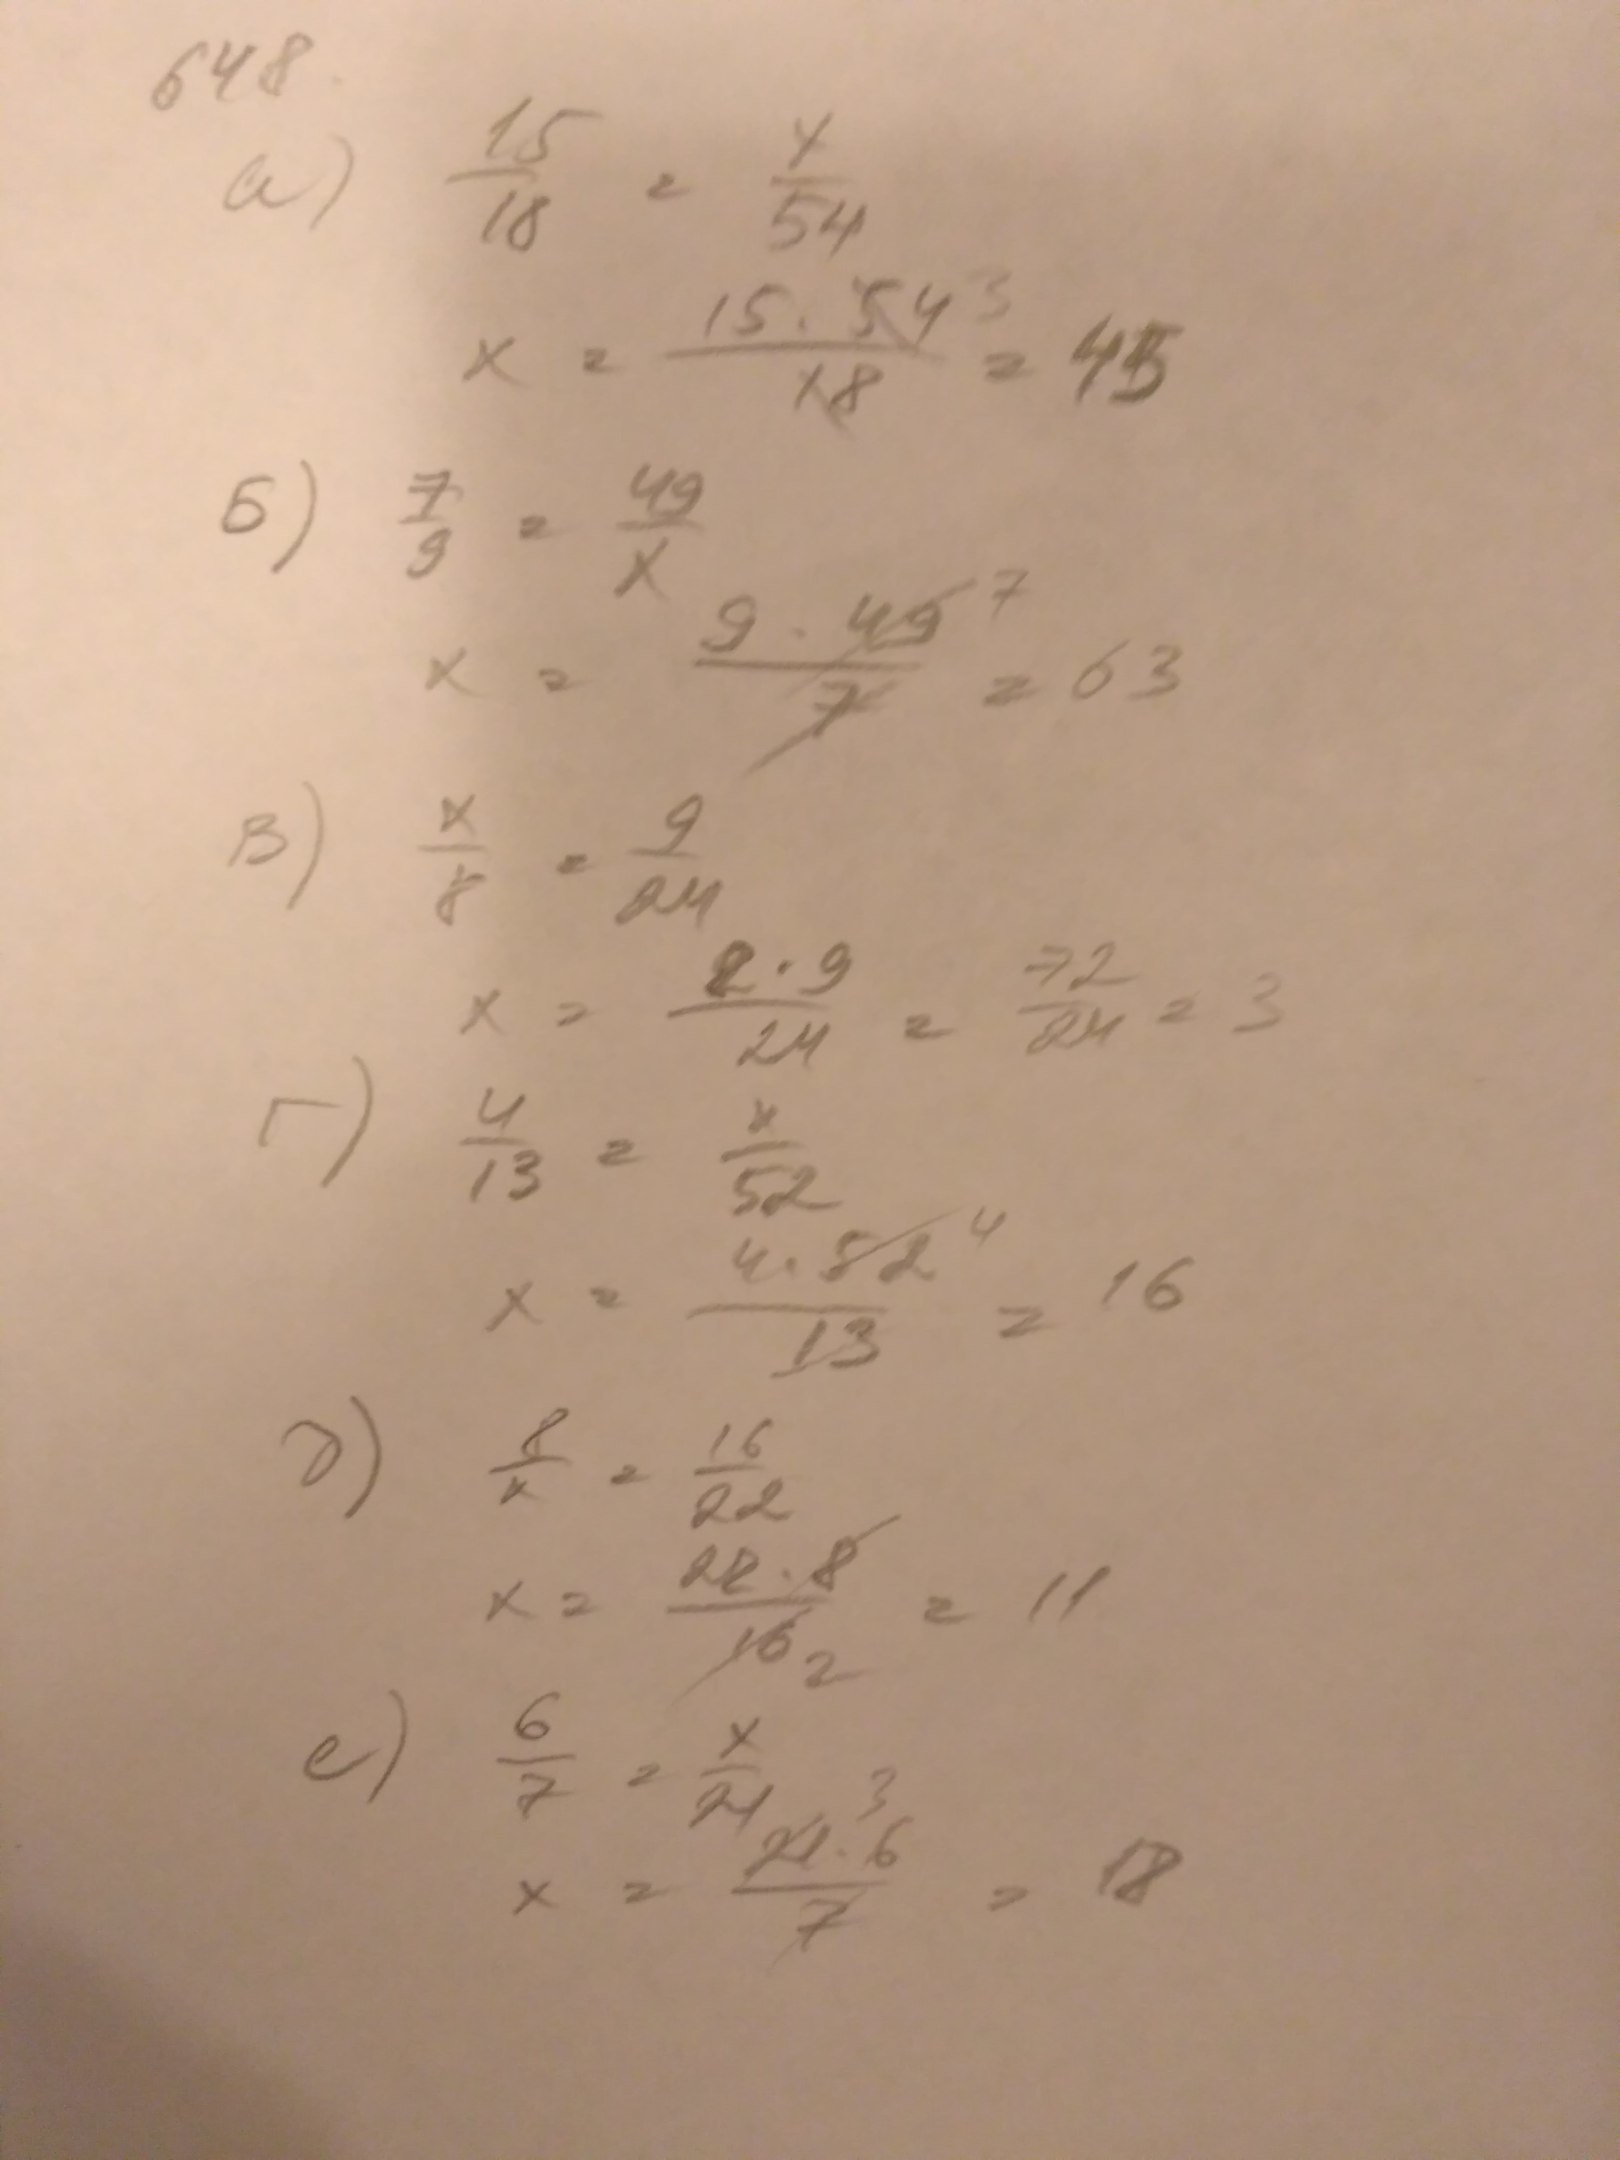 648.
а) 15/18 = x/54
x = 15 · 54 3/18 = 45
Б) 7/9 = 49/x
x = 9 · 49 7/7 = 63
В) x/8 = 9/24
x = 8 · 9/24 = 72/24 = 3
Г) 4/13 = x/52
x = 4 · 52 4/13 = 16
д) 8/x = 16/22
x = 22 · 8/16 2 = 11
е) 6/7 = x/21
x = 21 3 · 6/7 = 18